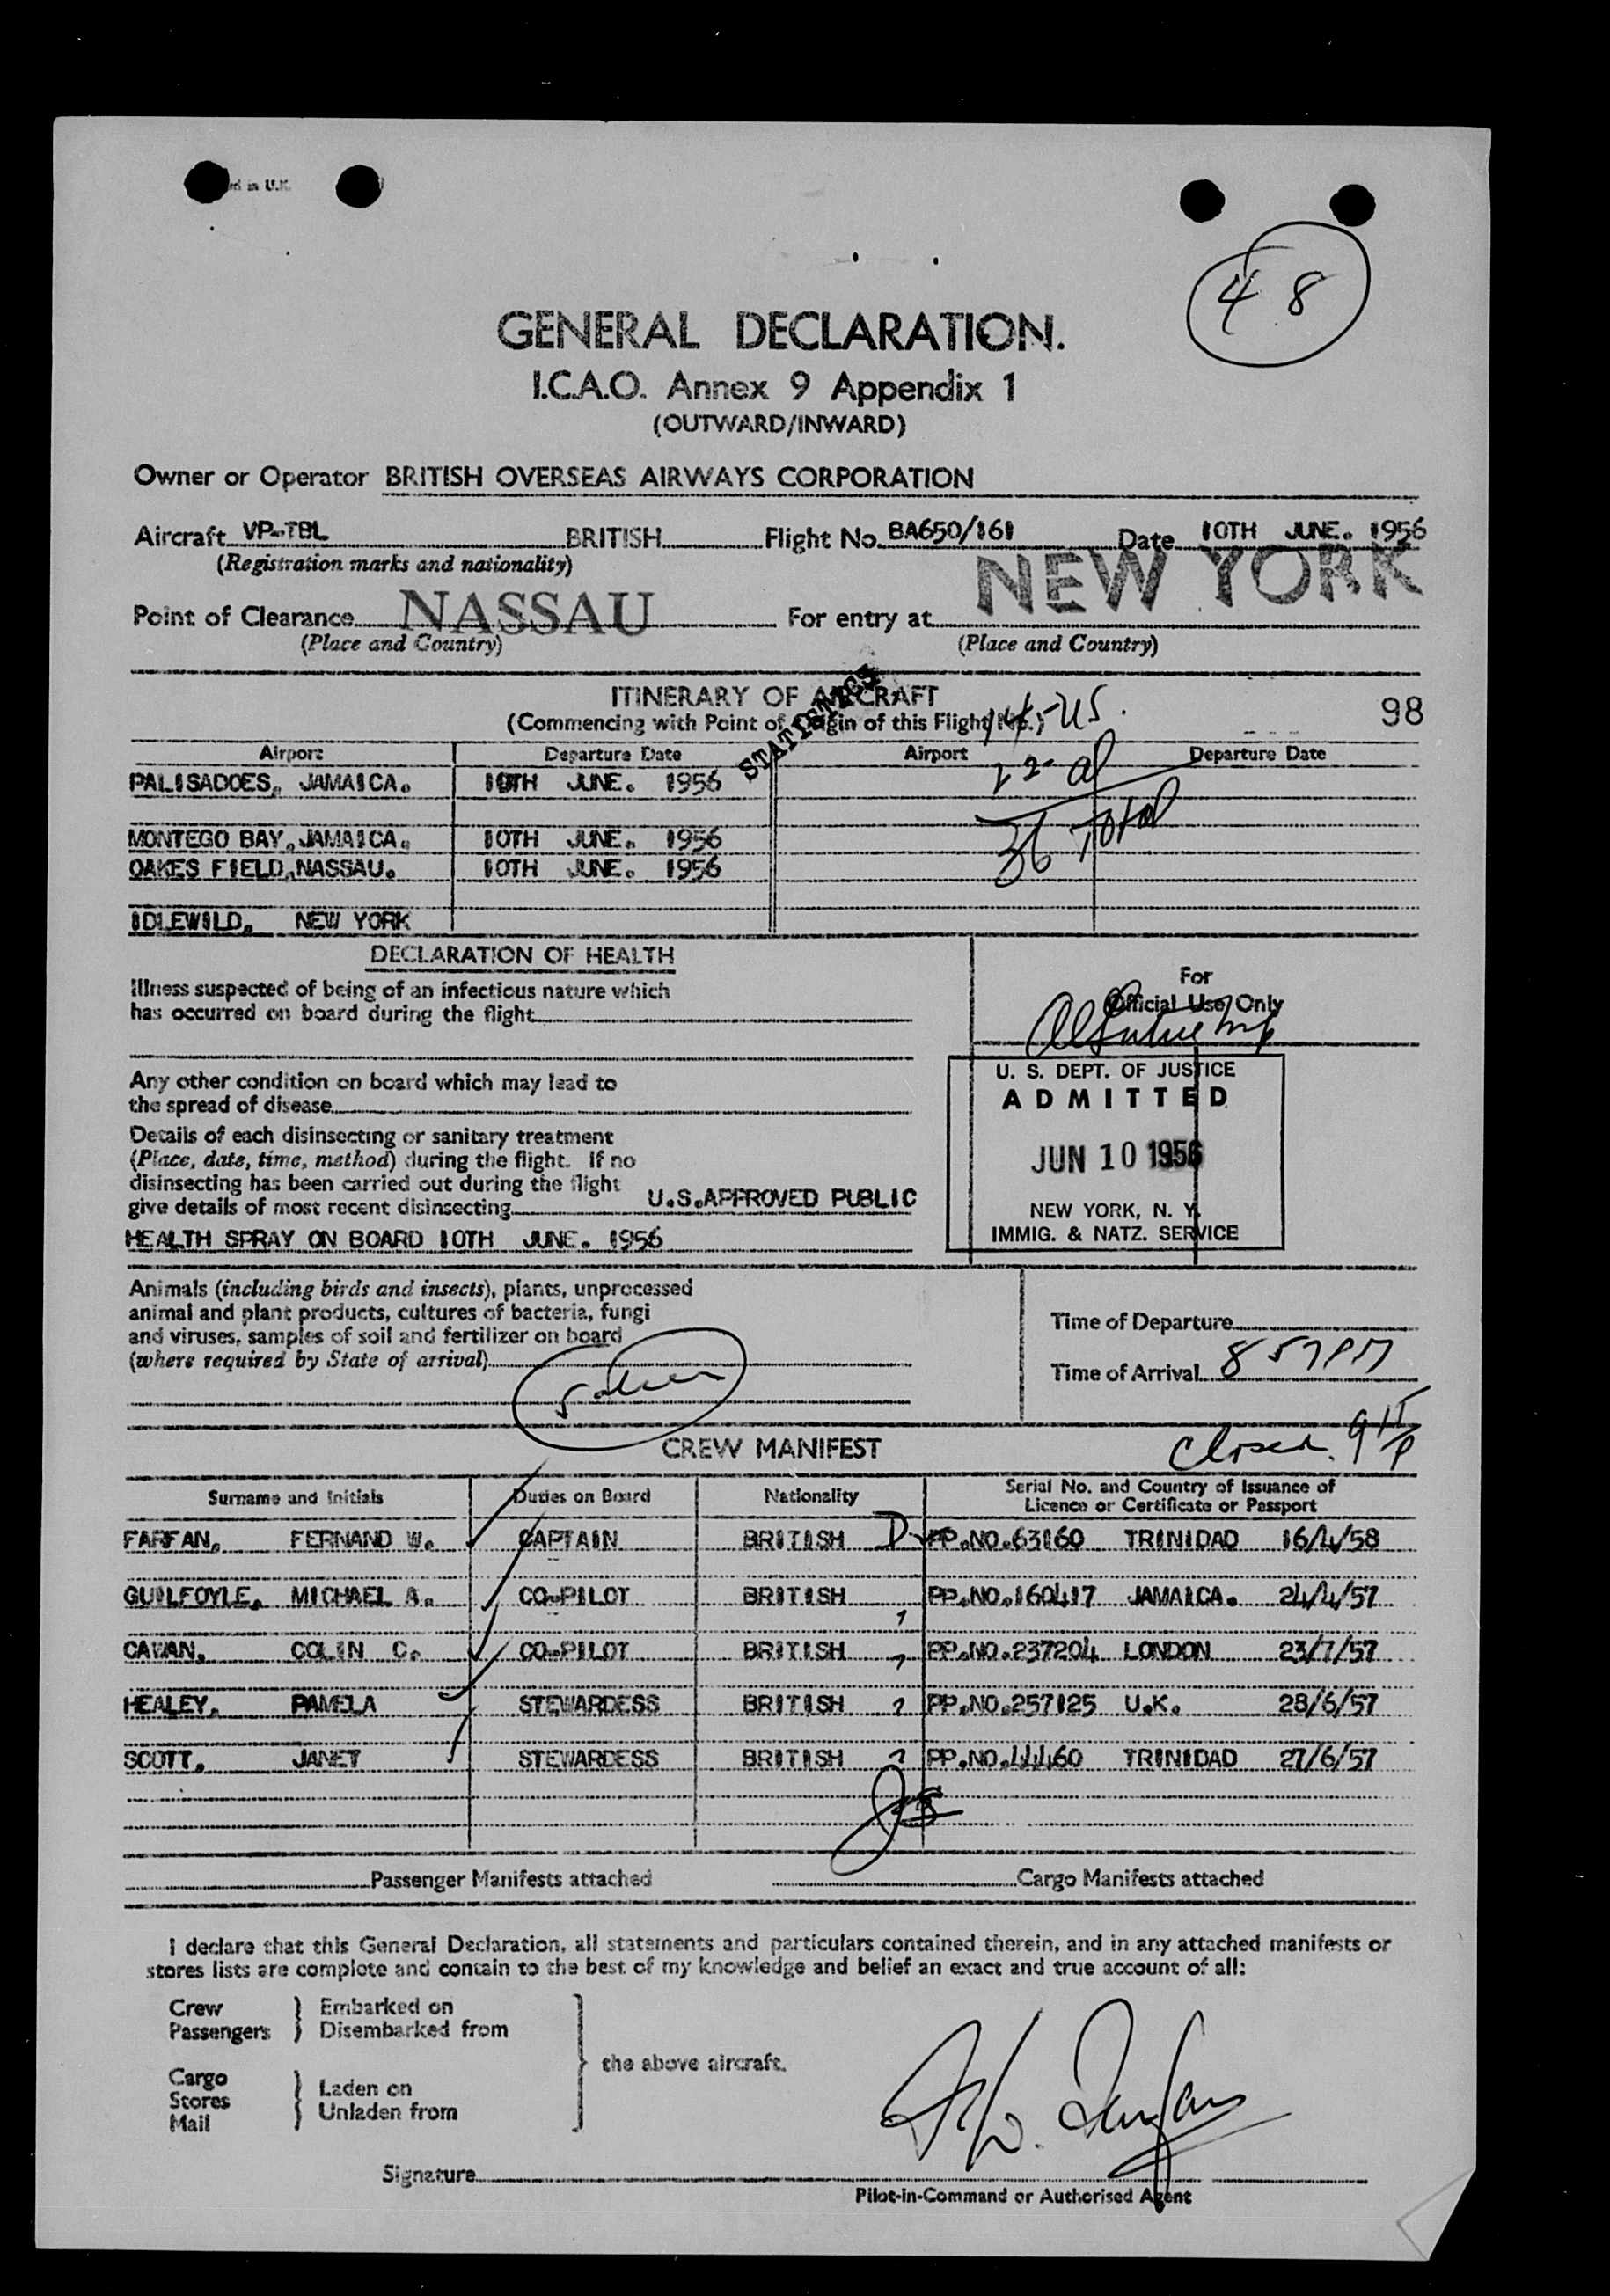 ed in U.K.
4 8
GENERAL DECLARATION.
I.C.A.O. Annex 9 Appendix 1
(OUTWARD/INWARD)
Owner or Operator BRITISH OVERSEAS AIRWAYS CORPORATION
Aircraft VP-TBL BRITISH Flight No. BA650/161 Date 10TH JUNE. 1956
(Registration marks and nationality)
Point of Clearance NASSAU For entry at NEW YORK
(Place and Country) (Place and Country)
STATISTICS
ITINERARY OF AIRCRAFT
14-US. 98
(Commencing with Point of Origin of this Flight No.)
Airport Departure Date Airport Departure Date
PALISADOES, JAMAICA. 10TH JUNE. 1956 22-al
MONTEGO BAY, JAMAICA. 10TH JUNE. 1956 36 Total
OAKES FIELD, NASSAU. 10TH JUNE. 1956
IDLEWILD, NEW YORK
DECLARATION OF HEALTH
Illness suspected of being of an infectious nature which
has occurred on board during the flight
For
Official Use Only
Any other condition on board which may lead to
the spread of disease
Details of each disinsecting or sanitary treatment
(Place, date, time, method) during the flight. If no
disinsecting has been carried out during the flight
give details of most recent disinsecting U.S.APPROVED PUBLIC
HEALTH SPRAY ON BOARD 10TH JUNE. 1956
U. S. DEPT. OF JUSTICE
ADMITTED
JUN 10 1956
NEW YORK, N. Y.
IMMIG. & NATZ. SERVICE
Animals (including birds and insects), plants, unprocessed
animal and plant products, cultures of bacteria, fungi
and viruses, samples of soil and fertilizer on board
(where required by State of arrival)
Time of Departure
Time of Arrival 8 57 PM
Closed. 9 15/P
CREW MANIFEST
Surname and Initials Duties on Board Nationality Serial No. and Country of Issuance of
Licence or Certificate or Passport
FARFAN, FERNAND W. CAPTAIN BRITISH D PP.NO.63160 TRINIDAD 16/4/58
GUILFOYLE, MICHAEL A. CO-PILOT BRITISH PP.NO.160417 JAMAICA. 24/4/57
CAWAN, COLIN C. CO-PILOT BRITISH PP.NO.237204 LONDON 23/7/57
HEALEY, PAMELA STEWARDESS BRITISH PP.NO.257125 U.K. 28/6/57
SCOTT, JANET STEWARDESS BRITISH PP.NO.44460 TRINIDAD 27/6/57
Passenger Manifests attached Cargo Manifests attached
I declare that this General Declaration, all statements and particulars contained therein, and in any attached manifests or
stores lists are complete and contain to the best of my knowledge and belief an exact and true account of all:
Crew Embarked on
Passengers Disembarked from
the above aircraft.
Cargo
Stores Laden on
Mail Unladen from
F.W. Farfan
Signature
Pilot-in-Command or Authorised Agent